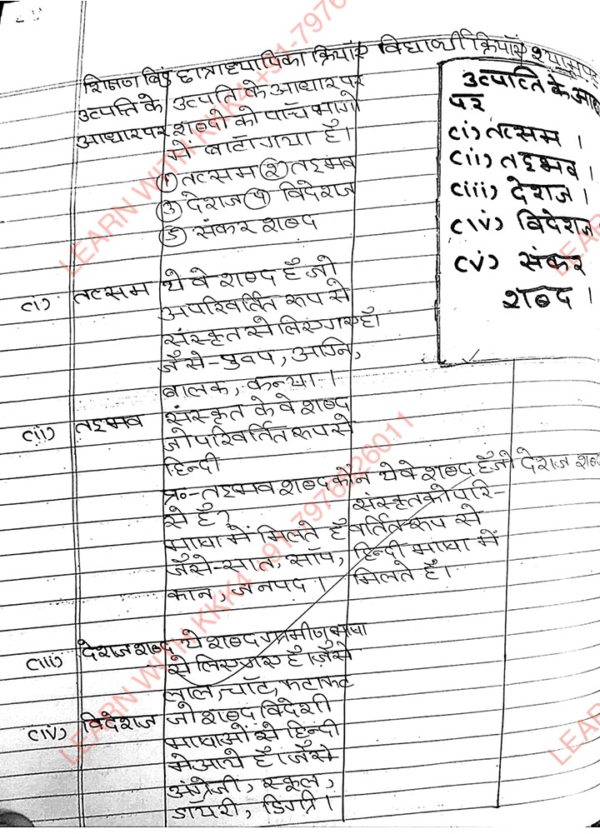 शिक्षण बिंदु छात्राध्यापिका क्रियाएं विद्यार्थी क्रियाएं श्यामपट
उत्पति के उत्पति के आधार पर
आधार पर शब्दों को पाँच भागों
में बाटाँ गया है।
① तत्सम ② तद्भव
③ देशज ④ विदेशज
⑤ संकर शब्द
उत्पत्ति के आधा
पर
(i) तत्सम ।
(ii) तद्भव ।
(iii) देशज ।
(iv) विदेशज
(v) संकर
शब्द ।
(i) तत्सम ये वे शब्द है जो
अपरिवर्तित रूप से
संस्कृत से लिए गए है।
जैसे- पुष्प, अग्नि,
बालक, कन्या ।
(ii) तद्भव संस्कृत के वे शब्द
जो परिवर्तित रूप से
हिन्दी
प्र:- तद्भव शब्द कौन ये वे शब्द हैं जो देशज शब्द
से है? संस्कृत को परि-
भाषा में मिलते हैं वर्तित रूप से
जैसे- सात, साँप, हिन्दी भाषा में
कान, जनपद । मिलते हैं।
(iii) देशज शब्द ये शब्द ग्रामीण भाषा
से लिए गए है। जैसे
लाल, चाँट, फटाफट
(iv) विदेशज जो शब्द विदेशी
भाषाओं से हिन्दी
में आये है। जैसे
अंग्रेजी, स्कूल,
डॉयरी, डिग्री।
LEARN WITH KKK4 +91-7976926011